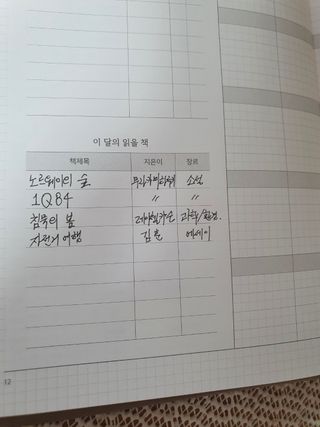 이 달의 읽을 책
책제목 지은이 장르
노르웨이의 숲 무라카미하루키 소설
1Q84 〃 〃
침묵의 봄 레이첼카슨 과학/환경.
자전거 여행 김훈 에세이
12